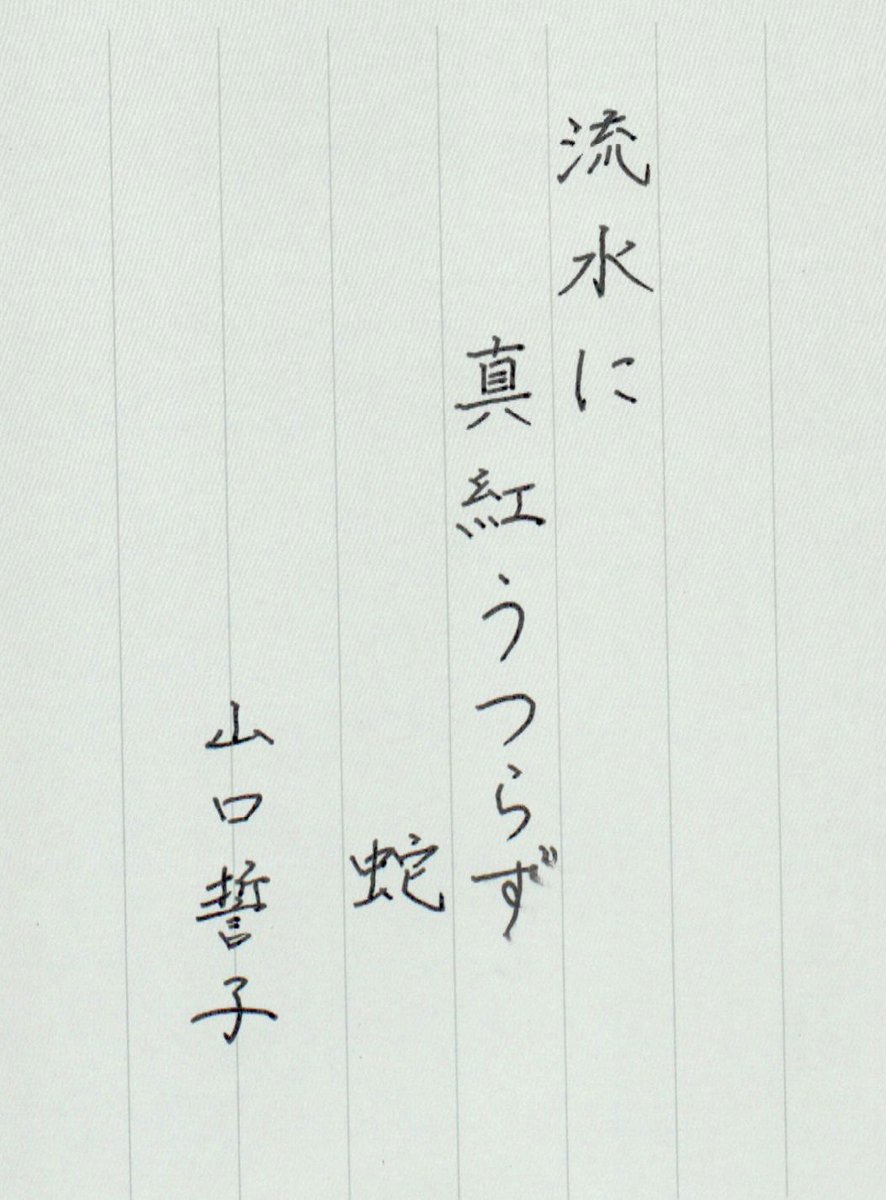 流水に
真紅うつらず
蛇
山口誓子